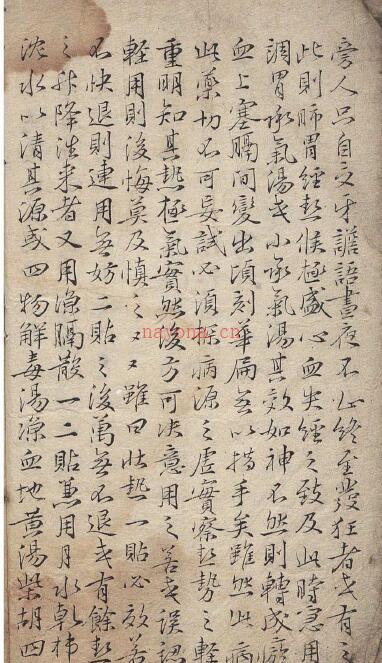 旁人只自交牙譫語晝夜不止終至發狂者或有之
此則肺胃經熱候極盛心血失經之致及此時急用
調胃承氣湯或小承氣湯其效如神不然則轉成瘀
血上塞膈間變出頃刻華扁無以措手矣雖然此病
此藥切不可妄試必須探病源之虛實察熱勢之輕
重明知其熱極氣實然後方可決意用之若或誤認
輕用則後悔莫及慎之々々雖曰壯熱一貼必效若
不快退則連用無妨二貼之後萬無不退或有餘熱
之升降往來者又用涼隔散一二貼兼用月水乾柿
沈水以清其源或四物解毒湯涼血地黃湯柴胡四
nayona.cn